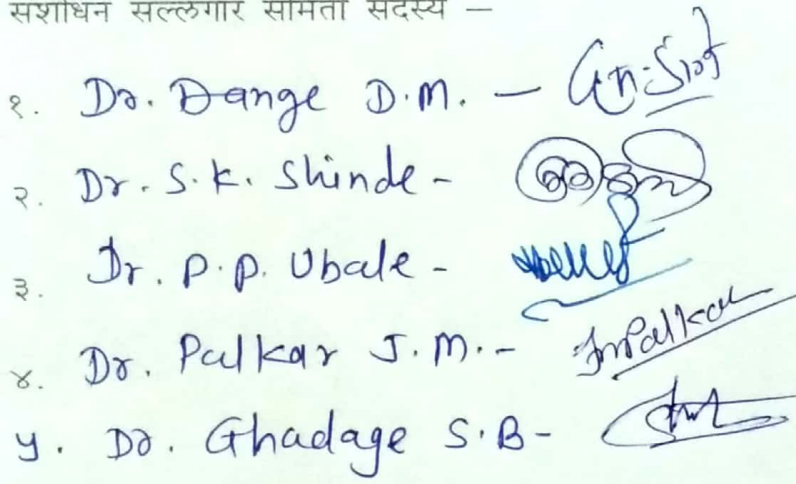 संशोधन सल्लगार समिती सदस्य –
१. Dr. Dange D.M. –
२. Dr. S.K. Shinde -
३. Dr. P.P. Ubale -
४. Dr. Palkar J.M. - JmPalkar
५. Dr. Ghadage S.B -